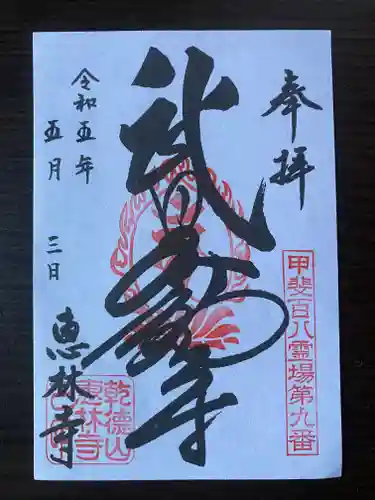 奉拝
甲斐百八霊場第九番
武田不動尊
令和五年
五月 三日
恵林寺
乾徳山
恵林寺